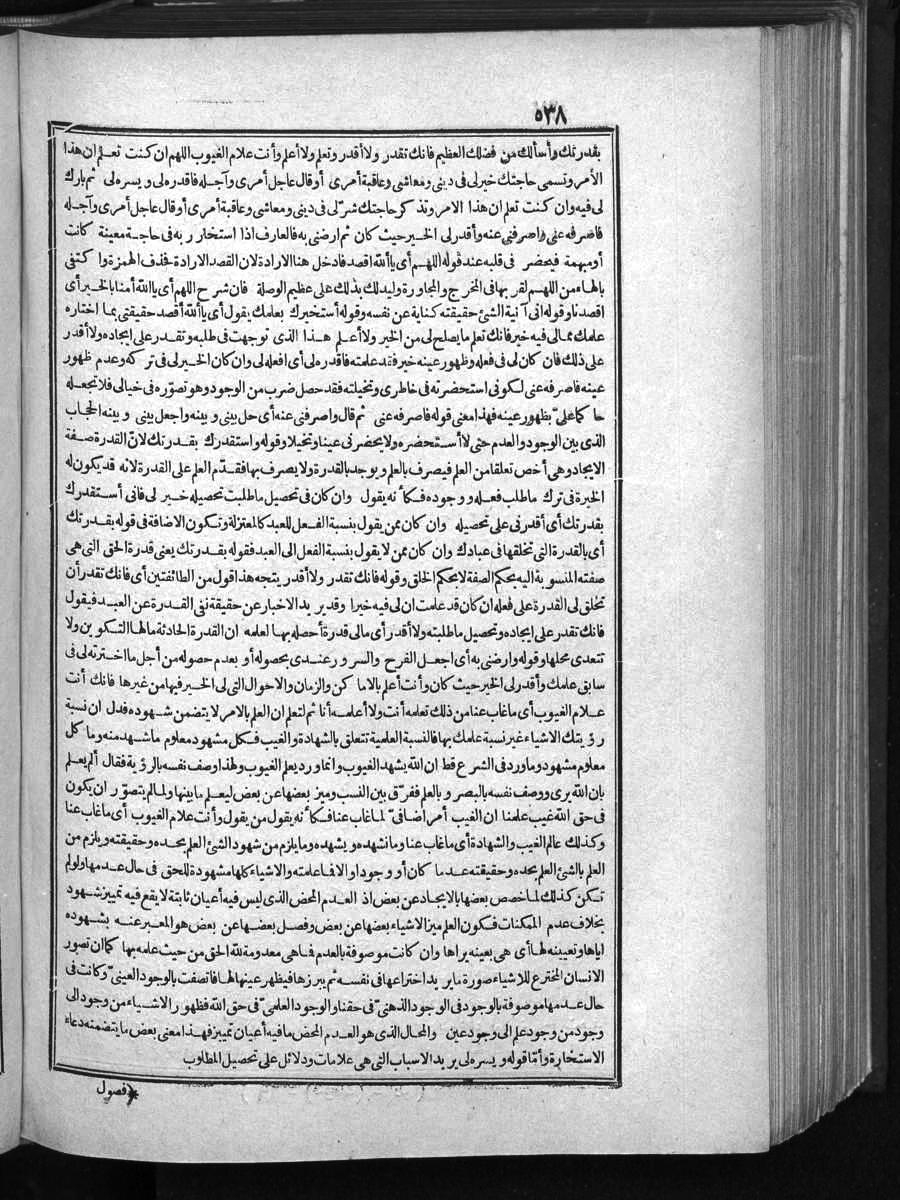 ٥٣٨
بقدرتك وأسألك من فضلك العظيم فانك تقدر ولا أقدر وتعلم ولا أعلم وأنت علام الغيوب اللهم ان كنت تعلم ان هذا
الأمر وتسمى حاجتك خير لى فى دينى ومعاشى وعاقبة أمرى أو قال عاجل أمرى وآجله فاقدره لى ويسره لى ثم بارك
لى فيه وان كنت تعلم ان هذا الامر وتذكر حاجتك شر لى فى دينى ومعاشى وعاقبة أمرى أو قال عاجل أمرى وآجله
فاصرفه عنى واصرفنى عنه وأقدر لى الخير حيث كان ثم ارضنى به فالعارف اذا استخار ربه فى حاجة معينة كانت
أو مبهمة فيحضر فى قلبه عند قوله اللهم أى يا ألله اقصد فادخل هنا الارادة لان القصد الارادة فحذف الهمزة واكتفى
بالهاء من اللهم لقربها فى المخرج والمجاورة وليدلك بذلك على عظيم الوصلة فان شرح اللهم أى يا ألله أمنا بالخير أى
اقصدنا وقوله انى آنية الشئ حقيقته كناية عن نفسه وقوله أستخيرك بعلمك يقول أى يا ألله أقصد حقيقتى بما اختاره
علمك ممالى فيه خير فانك تعلم ما يصلح لى من الخير ولا أعلم هذا الذى توجهت فى طلبه وتقدر على ايجاده ولا أقدر
على ذلك فان كان لى فى فعله وظهور عينه خير فقد علمته فاقدره لى أى افعله لى وان كان الخير لى فى تركه وعدم ظهور
عينه فاصرفه عنى لكونى استحضرته فى خاطرى وتخيلته فقد حصل ضرب من الوجود وهو تصوره فى خيالى فلا تجعله
حاكما علىّ بظهور عينه فهذا معنى قوله فاصرفه عنى ثم قال واصرفنى عنه أى حل بينى وبينه واجعل بينى وبينه الحجاب
الذى بين الوجود والعدم حتى لا أستحضره ولا يحضرنى عينا وتخيلا وقوله واستقدرك بقدرتك لانّ القدرة صفة
الايجاد وهى أخص تعلقا من العلم فيصرف بالعلم ويوجد بالقدرة ولا يصرف بها فقدّم العلم على القدرة لانه قد يكون له
الخيرة فى ترك ما طلب فعله ووجوده فكأنه يقول وان كان فى تحصيل ما طلبت تحصيله خير لى فانى أستقدرك
بقدرتك أى أقدرنى على تحصيله وان كان ممن يقول بنسبة الفعل للعبد كالمعتزلة وتكون الاضافة فى قوله بقدرتك
أى بالقدرة التى تخلقها فى عبادك وان كان ممن لا يقول بنسبة الفعل الى العبد فقوله بقدرتك يعنى قدرة الحق التى هى
صفته المنسوبة اليه بحكم الصفة لا بحكم الخلق وقوله فانك تقدر ولا أقدر يتجه هذا قول من الطائفتين أى فانك تقدر أن
تخلق لى القدرة على فعله ان كان قد علمت ان لى فيه خيرا وقد يريد الاخبار عن حقيقة نفى القدرة عن العبد فيقول
فانك تقدر على ايجاده وتحصيل ما طلبته ولا أقدر أى مالى قدرة أحصله بها لعلمه ان القدرة الحادثة مالها التكوين ولا
تتعدى محلها وقوله وارضنى به أى اجعل الفرح والسرور عندى بحصوله أو بعدم حصوله من أجل ما اخترته لى فى
سابق علمك وأقدر لى الخير حيث كان وأنت أعلم بالاماكن والزمان والاحوال التى لى الخير فيها من غيرها فانك أنت
علام الغيوب أى ما غاب عنا من ذلك تعلمه أنت ولا أعلمه أنا ثم لتعلم ان العلم بالامر لا يتضمن شهوده فدل ان نسبة
رؤيتك الاشياء غير نسبة علمك بها فالنسبة العلمية تتعلق بالشهادة والغيب فكل مشهود معلوم ما شهد منه وما كل
معلوم مشهود وما ورد فى الشرع قط ان الله يشهد الغيوب وانما ورد يعلم الغيوب ولهذا وصف نفسه بالرؤية فقال ألم يعلم
بان الله يرى ووصف نفسه بالبصر وبالعلم ففرّق بين النسب وميز بعضها عن بعض ليعلم ما بينها ولما لم يتصوّر ان يكون
فى حق الله غيب علمنا ان الغيب أمر اضافىّ لما غاب عنا فكأنه يقول من يقول وأنت علام الغيوب أى ما غاب عنا
وكذلك عالم الغيب والشهادة أى ما غاب عنا وما نشهده ويشهده وما يلزم من شهود الشئ العلم بحده وحقيقته ويلزم من
العلم بالشئ العلم بحده وحقيقته عدما كان أو وجودا والا فما علمته والاشياء كلها مشهودة للحق فى حال عدمها ولو لم
تكن كذلك لما خصص بعضها بالايجاد عن بعض اذ العدم المحض الذى ليس فيه أعيان ثابتة لا يقع فيه تمييز شهود
بخلاف عدم الممكنات فكون العلم ميز الاشياء بعضها عن بعض وفصل بعضها عن بعض هو المعبر عنه بشهوده
اياها وتعيينه لها أى هى بعينه يراها وان كانت موصوفة بالعدم فما هى معدومة لله الحق من حيث علمه بها كما ان تصور
الانسان المخترع للاشياء صورة ما يريد اختراعها فى نفسه ثم يبرزها فيظهر عينها لها فاتصفت بالوجود العينىّ وكانت فى
حال عدمها موصوفة بالوجود فى الوجود الذهنىّ فى حقنا والوجود العلمىّ فى حق الله فظهور الاشياء من وجود الى
وجود من وجود علم الى وجود عين والمحال الذى هو العدم المحض ما فيه أعيان تميز فهذا معنى بعض ما يتضمنه دعاء
الاستخارة وأمّا قوله ويسره لى يريد الاسباب التى هى علامات ودلائل على تحصيل المطلوب
* فصول